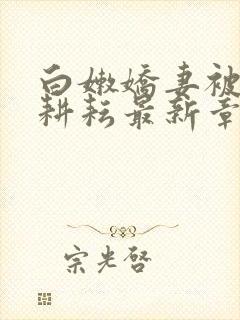 白嫩嬌妻被
耕耘最新章
宗光啓